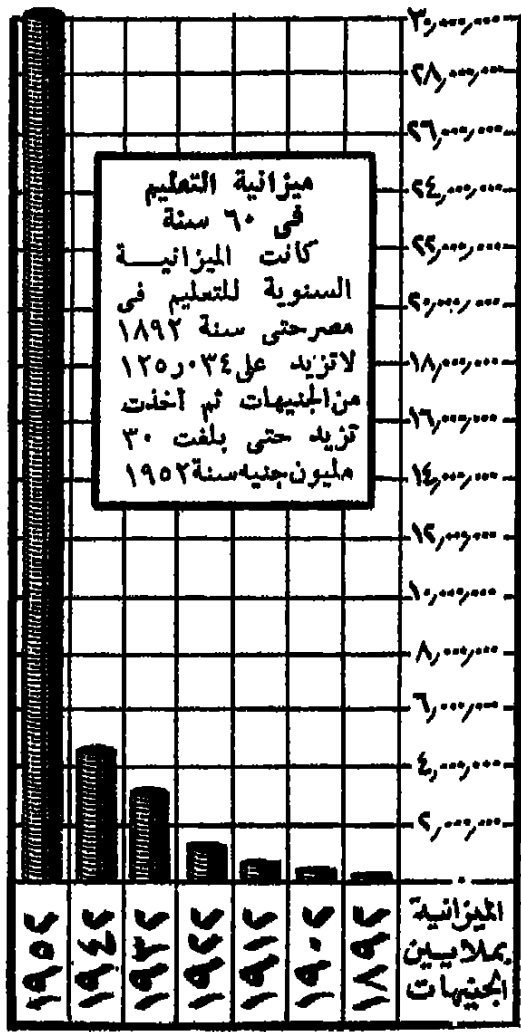 ٣٠,٠٠٠,٠٠٠
٢٨,٠٠٠,٠٠٠
٢٦,٠٠٠,٠٠٠
٢٤,٠٠٠,٠٠٠
٢٢,٠٠٠,٠٠٠
٢٠,٠٠٠,٠٠٠
١٨,٠٠٠,٠٠٠
١٦,٠٠٠,٠٠٠
١٤,٠٠٠,٠٠٠
١٢,٠٠٠,٠٠٠
١٠,٠٠٠,٠٠٠
٨,٠٠٠,٠٠٠
٦,٠٠٠,٠٠٠
٤,٠٠٠,٠٠٠
٢,٠٠٠,٠٠٠
٠
ميزانية التعليم
فى ٦٠ سنة
كانت الميزانيــة
السنوية للتعليم فى
مصر حتى سنة ١٨٩٢
لاتزيد على ١٢٥ر٠٣٤
من الجنيهات ثم أخذت
تزيد حتى بلغت ٣٠
مليون جنيه سنة ١٩٥٢
الميزانية
بملايين
الجنيهات
١٨٩٢
١٩٠٢
١٩١٢
١٩٢٢
١٩٣٢
١٩٤٢
١٩٥٢